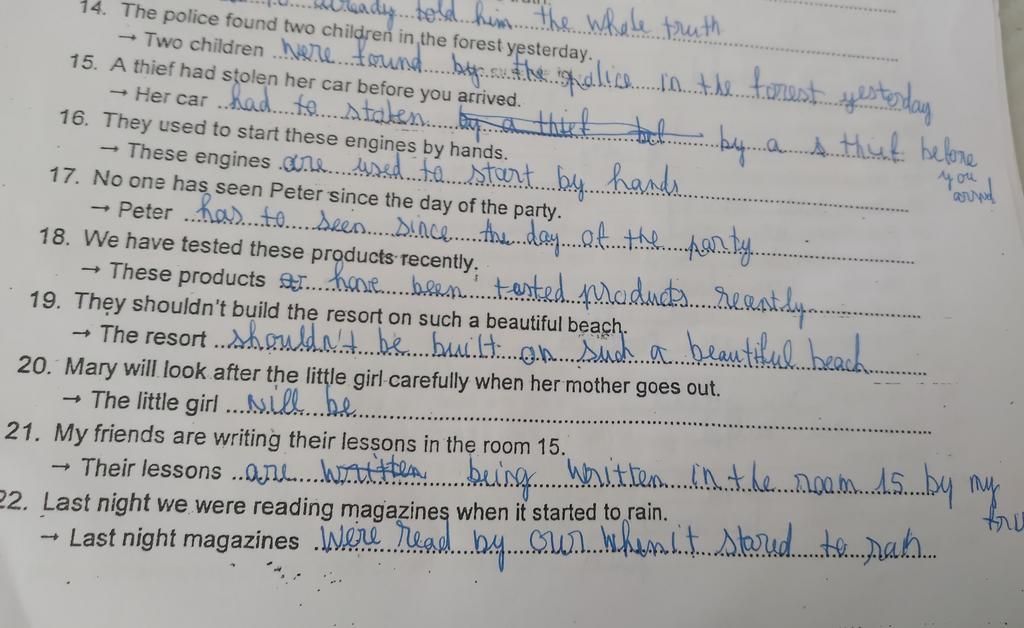 already told him the whole truth
14. The police found two children in the forest yesterday.
→ Two children were found by the police in the forest yesterday
15. A thief had stolen her car before you arrived.
→ Her car had to stolen by a thief by a s thief before
you
16. They used to start these engines by hands.
→ These engines are used to start by hands
17. No one has seen Peter since the day of the party.
→ Peter has to seen since the day of the party
18. We have tested these products recently.
→ These products have been tested products reantly
19. They shouldn't build the resort on such a beautiful beach.
→ The resort shouldn't be built on such a beautiful beach
20. Mary will look after the little girl carefully when her mother goes out.
→ The little girl will be
21. My friends are writing their lessons in the room 15.
→ Their lessons are written being written in the room 15 by my
22. Last night we were reading magazines when it started to rain.
→ Last night magazines were read by our when it stared to rah